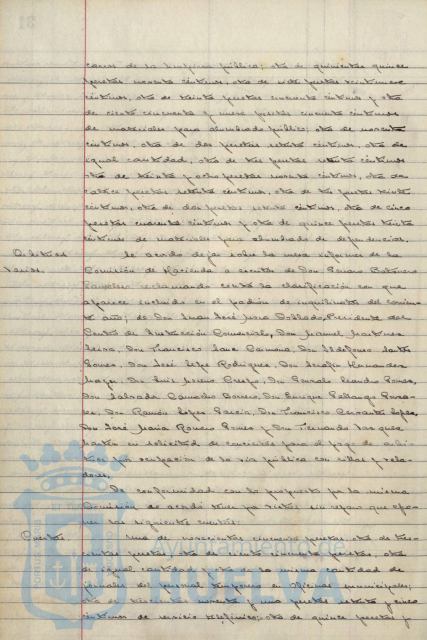 carros de la limpieza pública; otra de quinientas quince
pesetas noventa céntimos, otra de siete pesetas veintinueve
céntimos, otra de treinta pesetas cincuenta céntimos y otra
de ciento cincuenta y nueve pesetas cincuenta céntimos
de materiales para alumbrado público; otra de noventa
céntimos, otra de dos pesetas setenta céntimos, otra de
igual cantidad, otra de tres pesetas céntimos
otra de treinta y ocho pesetas noventa céntimos, otra de
catorce pesetas setenta céntimos, otra de tres pesetas veinte
céntimos, otra de dos pesetas setenta céntimos, otra de cinco
pesetas cuarenta céntimos y otra de quince pesetas treinta
céntimos de materiales para alumbrado de dependencias.
Arbitrios
varios.
Se acordó dejar sobre la mesa informes de la
Comisión de Hacienda a escritos de Don
reclamando contra la clasificación con que
aparece incluido en el padrón de inquilinatos del corriente
año; de Don Juan José Mora Doblado, Presidente del
Centro de Instrucción Comercial, Don Manuel Martínez
Don Francisco Don Ildefonso
Gómez, Don José López Rodríguez, Don Serafín Hernández
Don Luis Moreno Crespo, Don Gonzalo
Don Salvador Camacho Don Enrique
Don Ramón López García, Don Francisco Cervantes López,
Don José María Romero Gómez y Don Fernando Vazquez
Martín en solicitud de conciertos para el pago de arbi-
trios por ocupación de la vía pública con sillas y vela-
dores.
De conformidad con lo propuesto por la misma
Comisión se acordó
las siguientes cuentas:
Cuentas.
Una de cincuenta pesetas otra de tres-
cientas pesetas, otra de cincuenta pesetas, otra
de igual cantidad y otra de la misma cantidad de
jornales del personal temporero en Oficinas municipales;
otra de trescientas noventa y una pesetas setenta y cinco
céntimos de servicio telefónico; otra de quince pesetas y
Ayuntamiento de
HUELVA